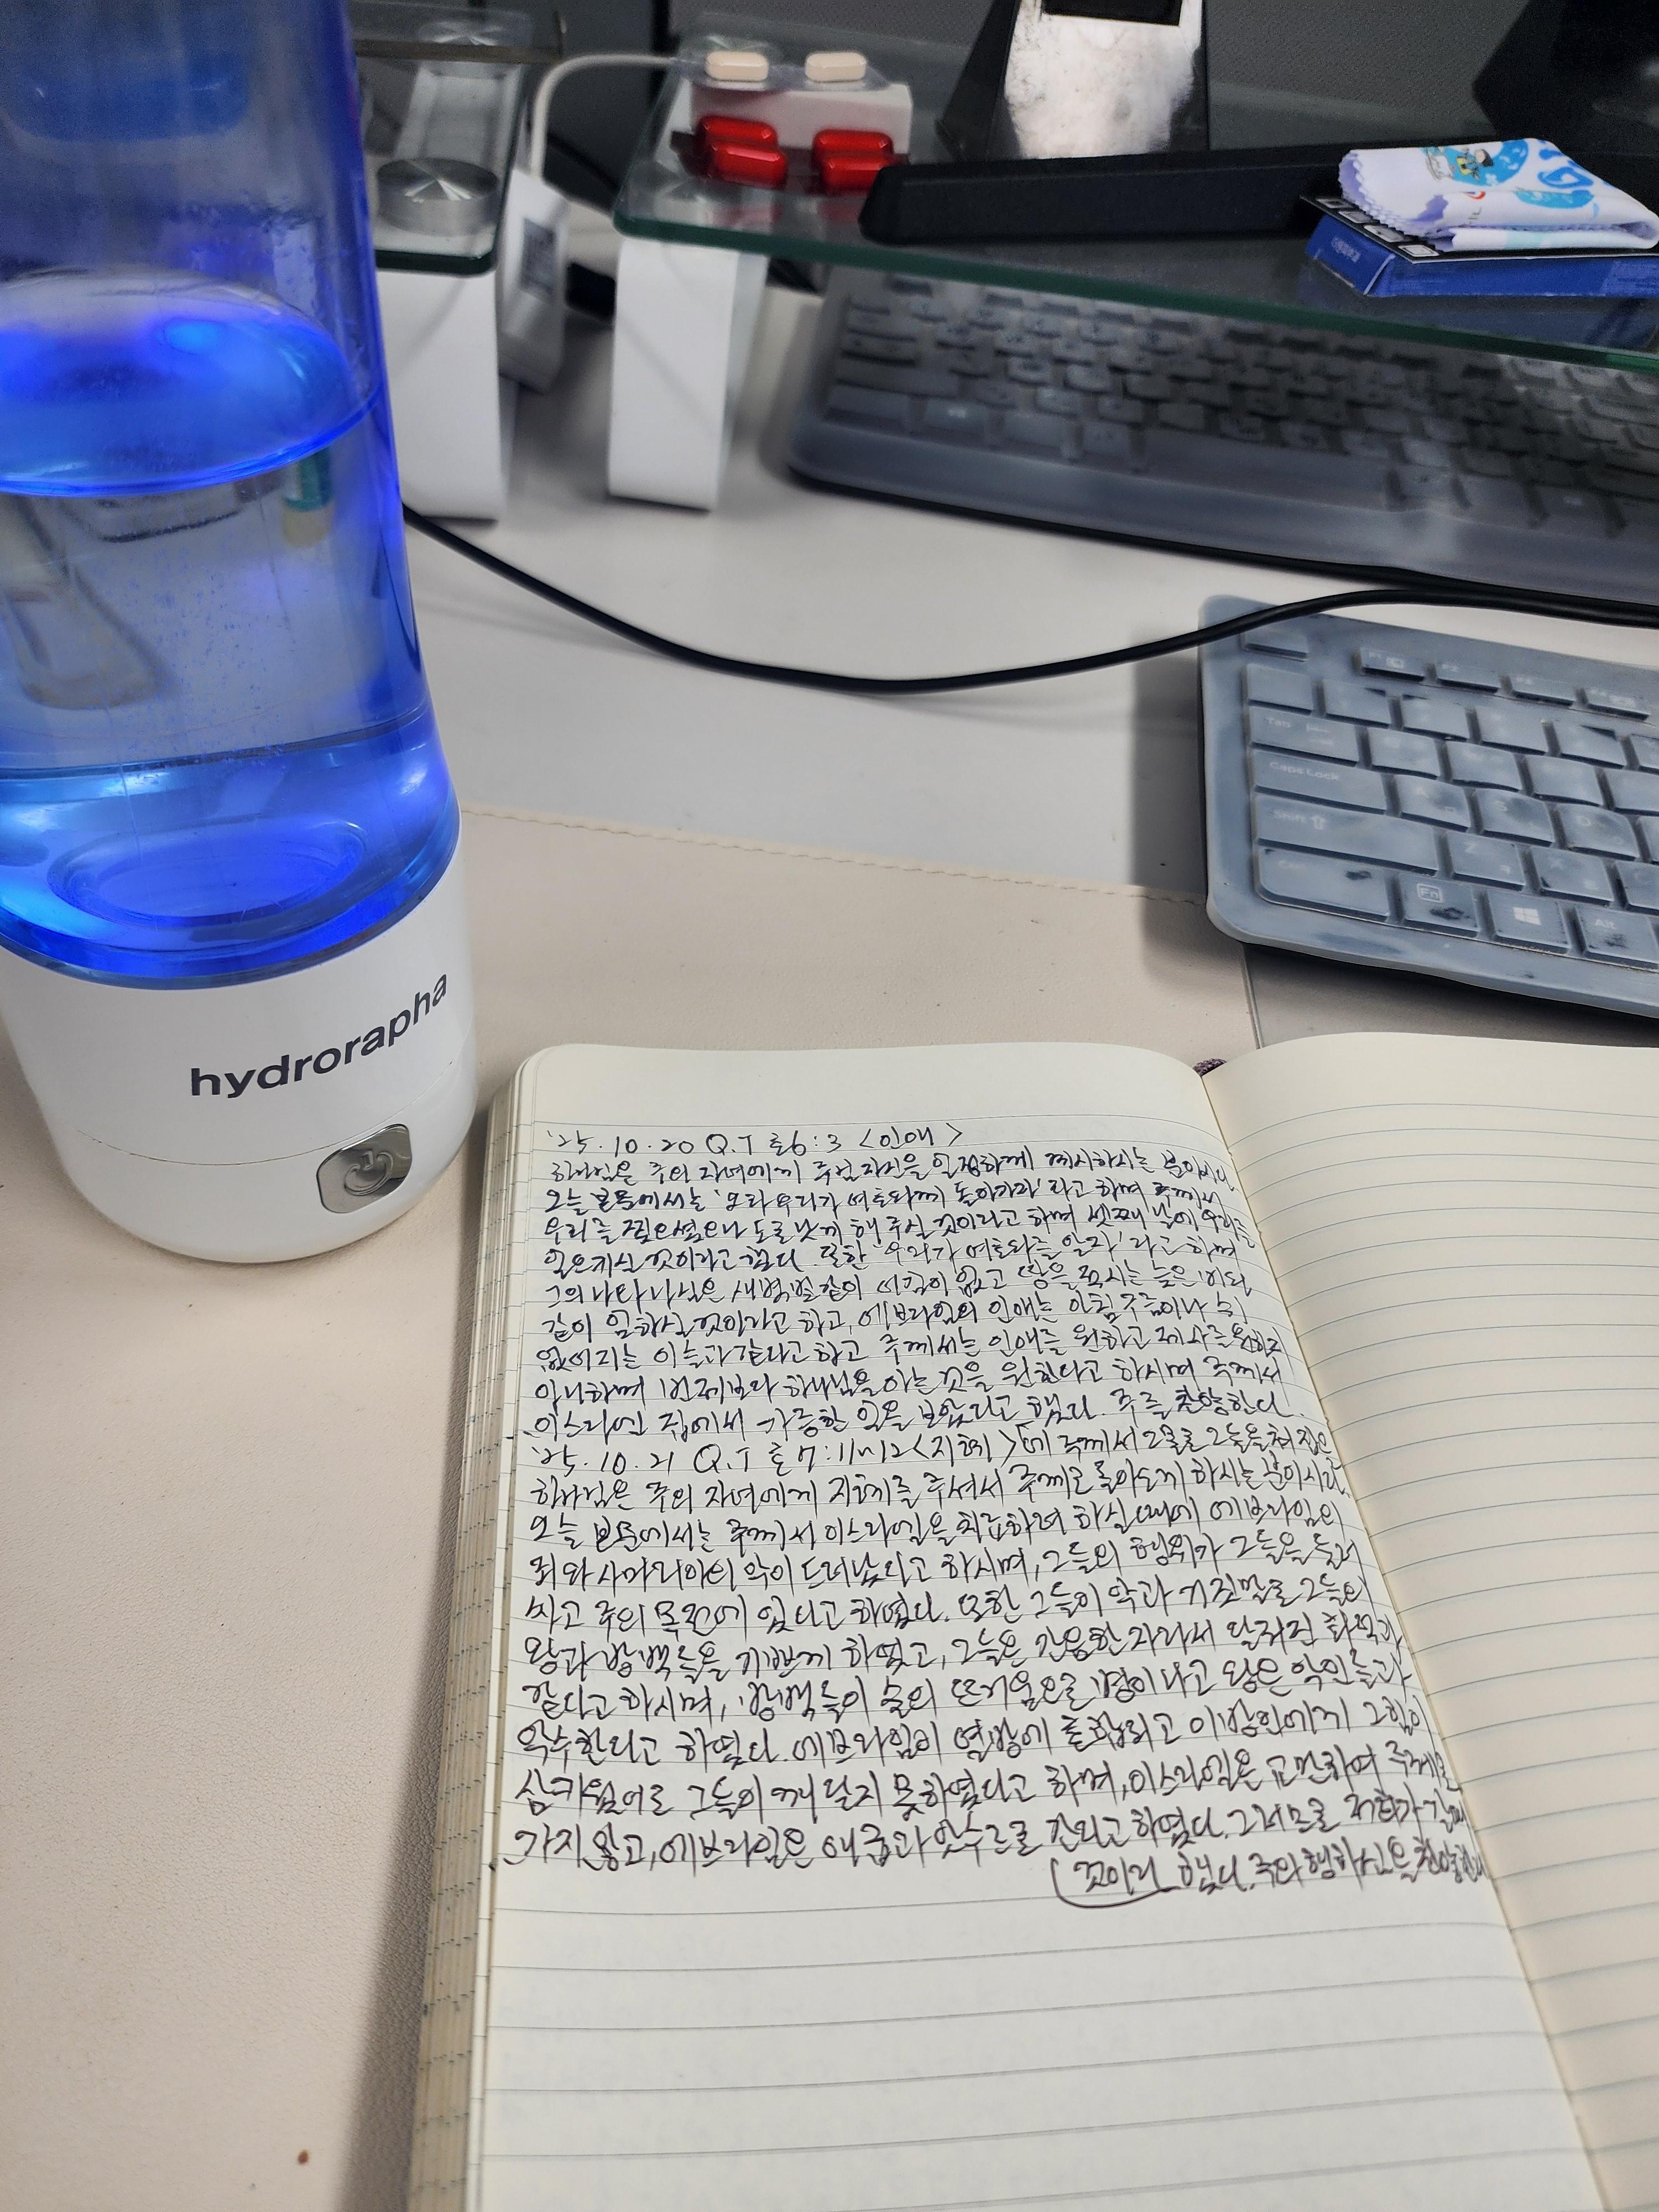 Tab
Caps Lock
Shift
Fn
Alt
hydrorapha
'25.10.20 Q.T 호6:3 <인애>
하나님은 주의 자녀에게 주님 자신을 일정하게 계시하시는 분이시다
오늘 본문에서는 '오라 우리가 여호와께 돌아가자' 라고 하며 주께서
우리를 찢으셨으나 도로 낫게 해 주실 것이라고 하며 셋째 날에 우리를
일으키실 것이라고 했다. 또한 '우리가 여호와를 알자' 라고 하며
그의 나타나심은 새벽빛 같이 어김이 없고 땅을 적시는 늦은 비와
같이 임하실 것이라고 하고, 에브라임의 인애는 아침 구름이나 쉬
없어지는 이슬과 같다고 하고 주께서는 인애를 원하고 제사를 원하지
아니하며 번제보다 하나님을 아는 것을 원한다고 하시며 주께서
이스라엘 집에서 가증한 일을 보았다고 했다. 주를 찬양한다.
'25.10.21 Q.T 호7:11~12 <지혜> 주께서 그물로 그들을 쳐
하나님은 주의 자녀에게 지혜를 주셔서 주께로 돌아오게 하시는 분이시라.
오늘 본문에서는 주께서 이스라엘을 치료하려 하실 때에 에브라임의
죄와 사마리아의 악이 드러났다고 하시며, 그들의 행위가 그들을 둘러
싸고 주의 목전에 있다고 하였다. 또한 그들이 악과 거짓말로 그들의
왕과 방백들을 기쁘게 하였고, 그들은 간음한 자라서 달궈진 화덕과
같다고 하시며, 방백들이 술의 뜨거움으로 병이 나고 왕은 악인들과
악수한다고 하였다. 에브라임이 열방에 혼합되고 이방인에게 그 힘이
삼키웠어도 그들이 깨닫지 못하였다고 하며, 이스라엘은 교만하여 주께로
가지 않고, 에브라임은 애굽과 앗수르로 간다고 하였다. 그러므로 저희가 갈때
것이라 했다. 주의 행하심을 찬양한다